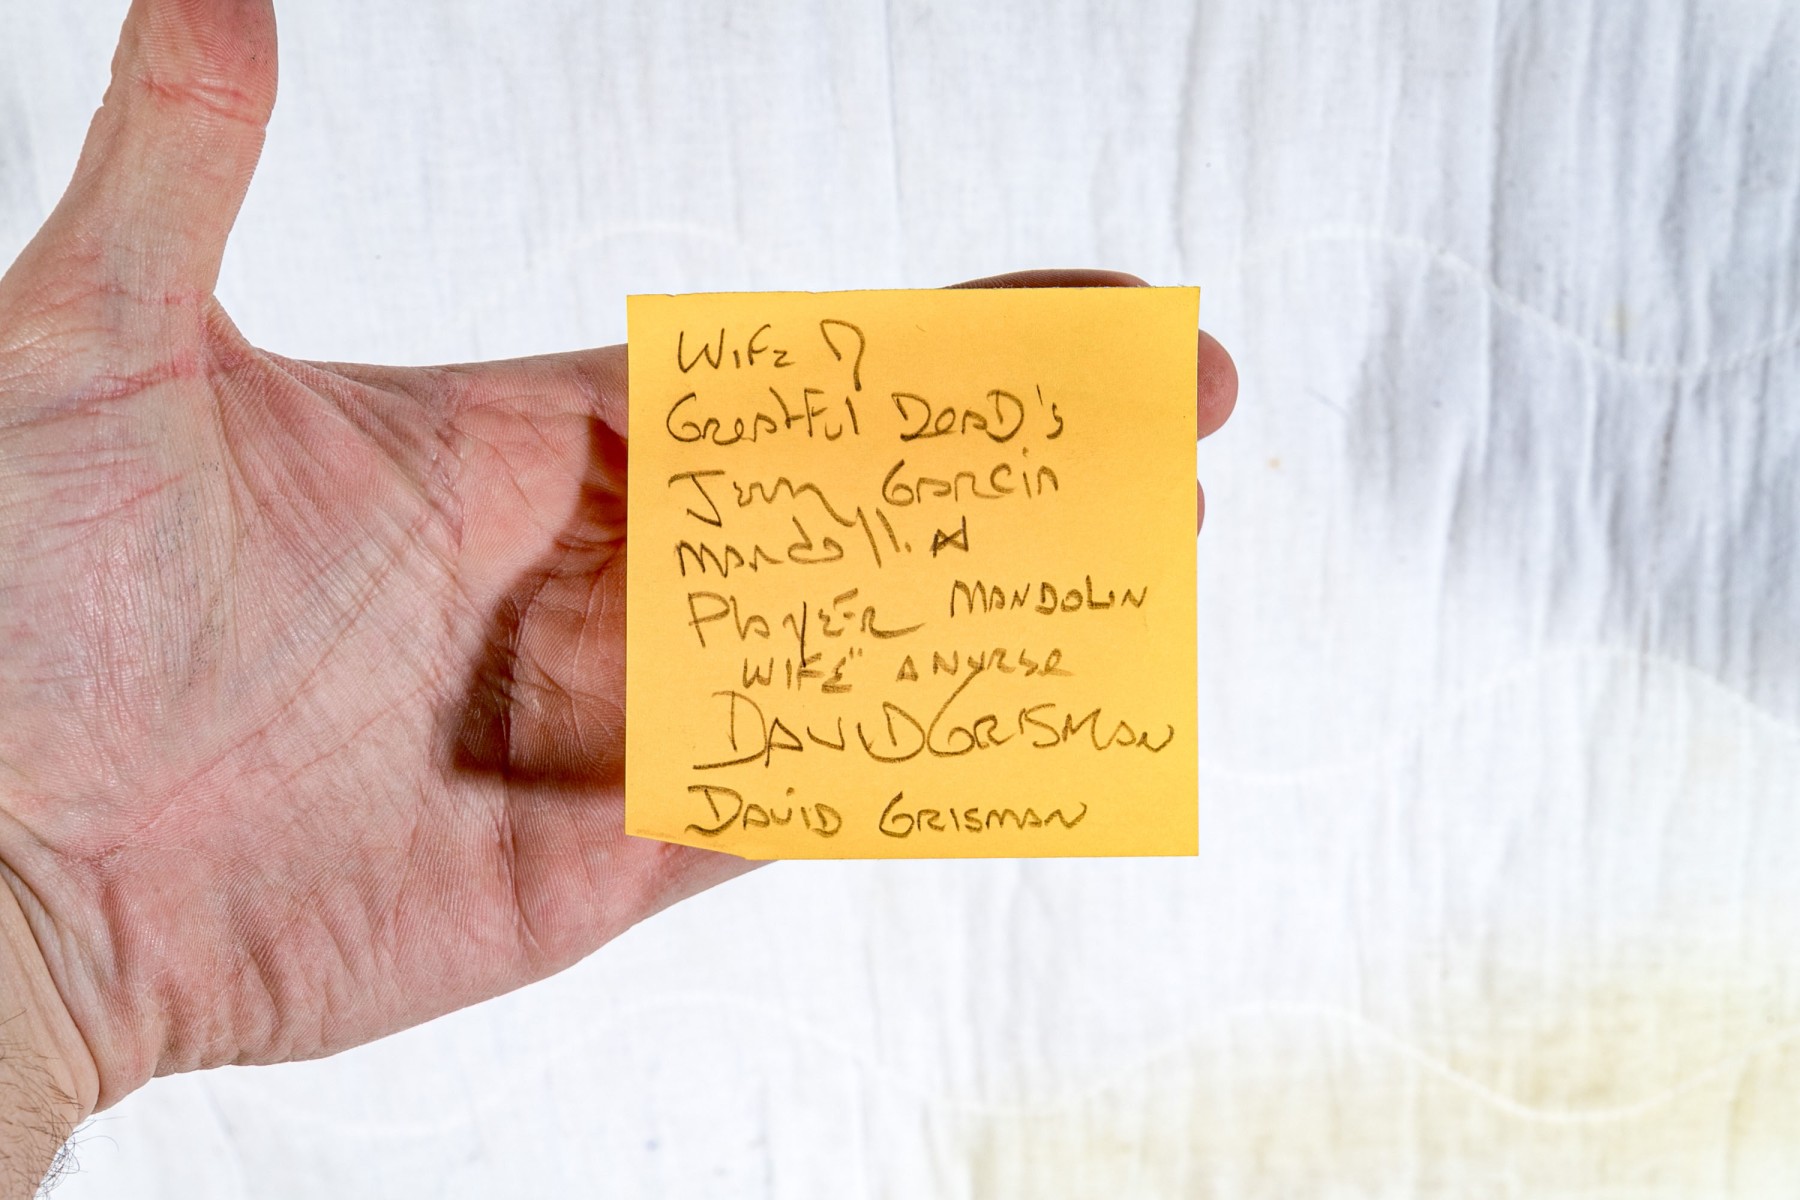 WiFe
Greatful DeaD's
Jerry GaRcia
manda
PlayER MANDOLIN
WIFE" A NURSE
DAVID GRISMAN
DAviD GRISMAN